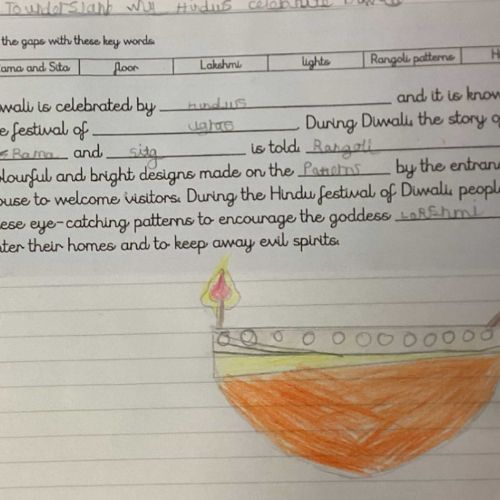 To understand why Hindus celebrate Diwali
the gaps with these key words.
ama and Sita floor Lakshmi lights Rangoli patterns H
wali is celebrated by hindus and it is know
e festival of lights. During Diwali, the story of
Rama and sita is told. Rangoli
lourful and bright designs made on the Patterns by the entran
ouse to welcome visitors. During the Hindu festival of Diwali, people
ese eye-catching patterns to encourage the goddess Lakshmi
nter their homes and to keep away evil spirits.